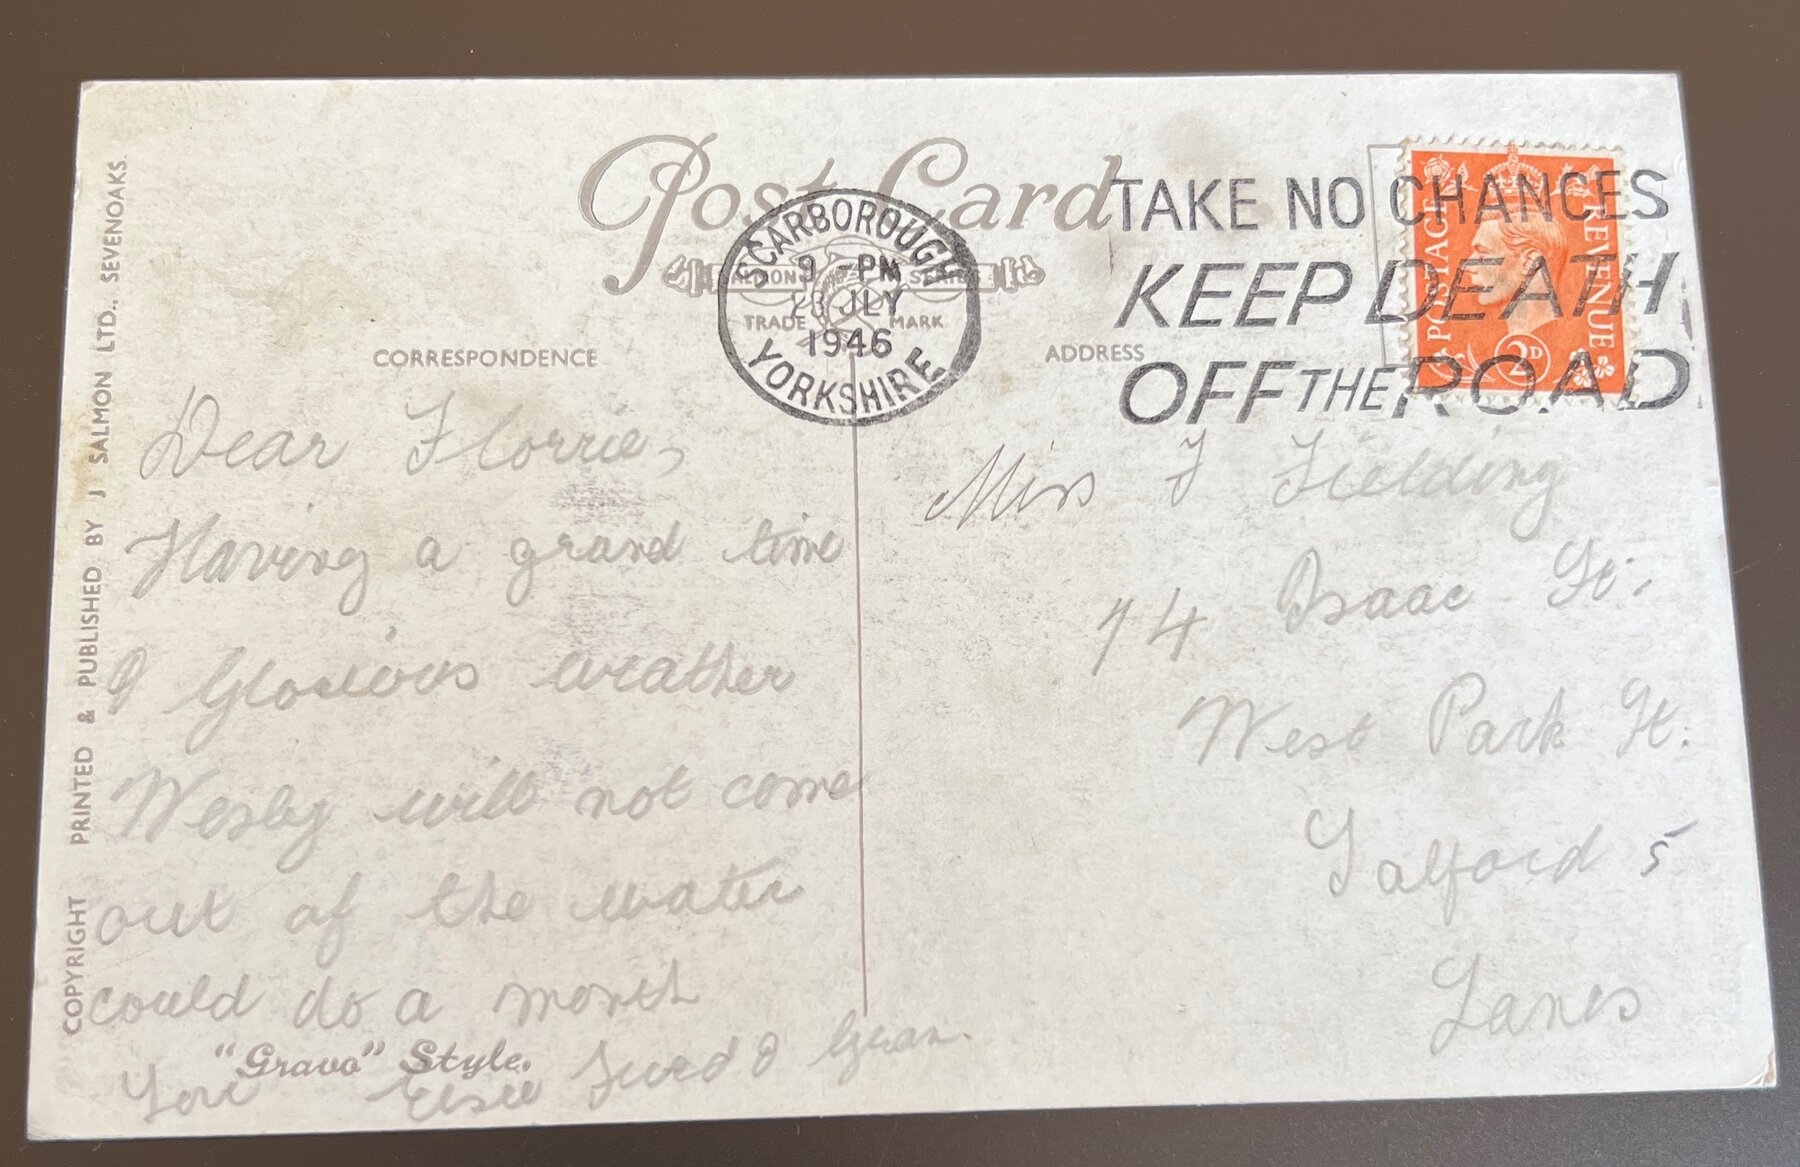 Post Card
TAKE NO CHANCES
KEEP DEATH
OFF THE ROAD
SCARBOROUGH
9 - PM
23 JLY
1946
YORKSHIRE
TRADE MARK
POSTAGE REVENUE
2D
CORRESPONDENCE
ADDRESS
Dear Florrie,
Having a grand time
& Glorious weather
Wesby will not come
out of the water
could do a month
Love Elsie Fred & Gran.
Miss F Fielding
74 Isaac St.
West Park St.
Salford 5
Lancs
"Gravo" Style.
COPYRIGHT PRINTED & PUBLISHED BY J SALMON LTD., SEVENOAKS.